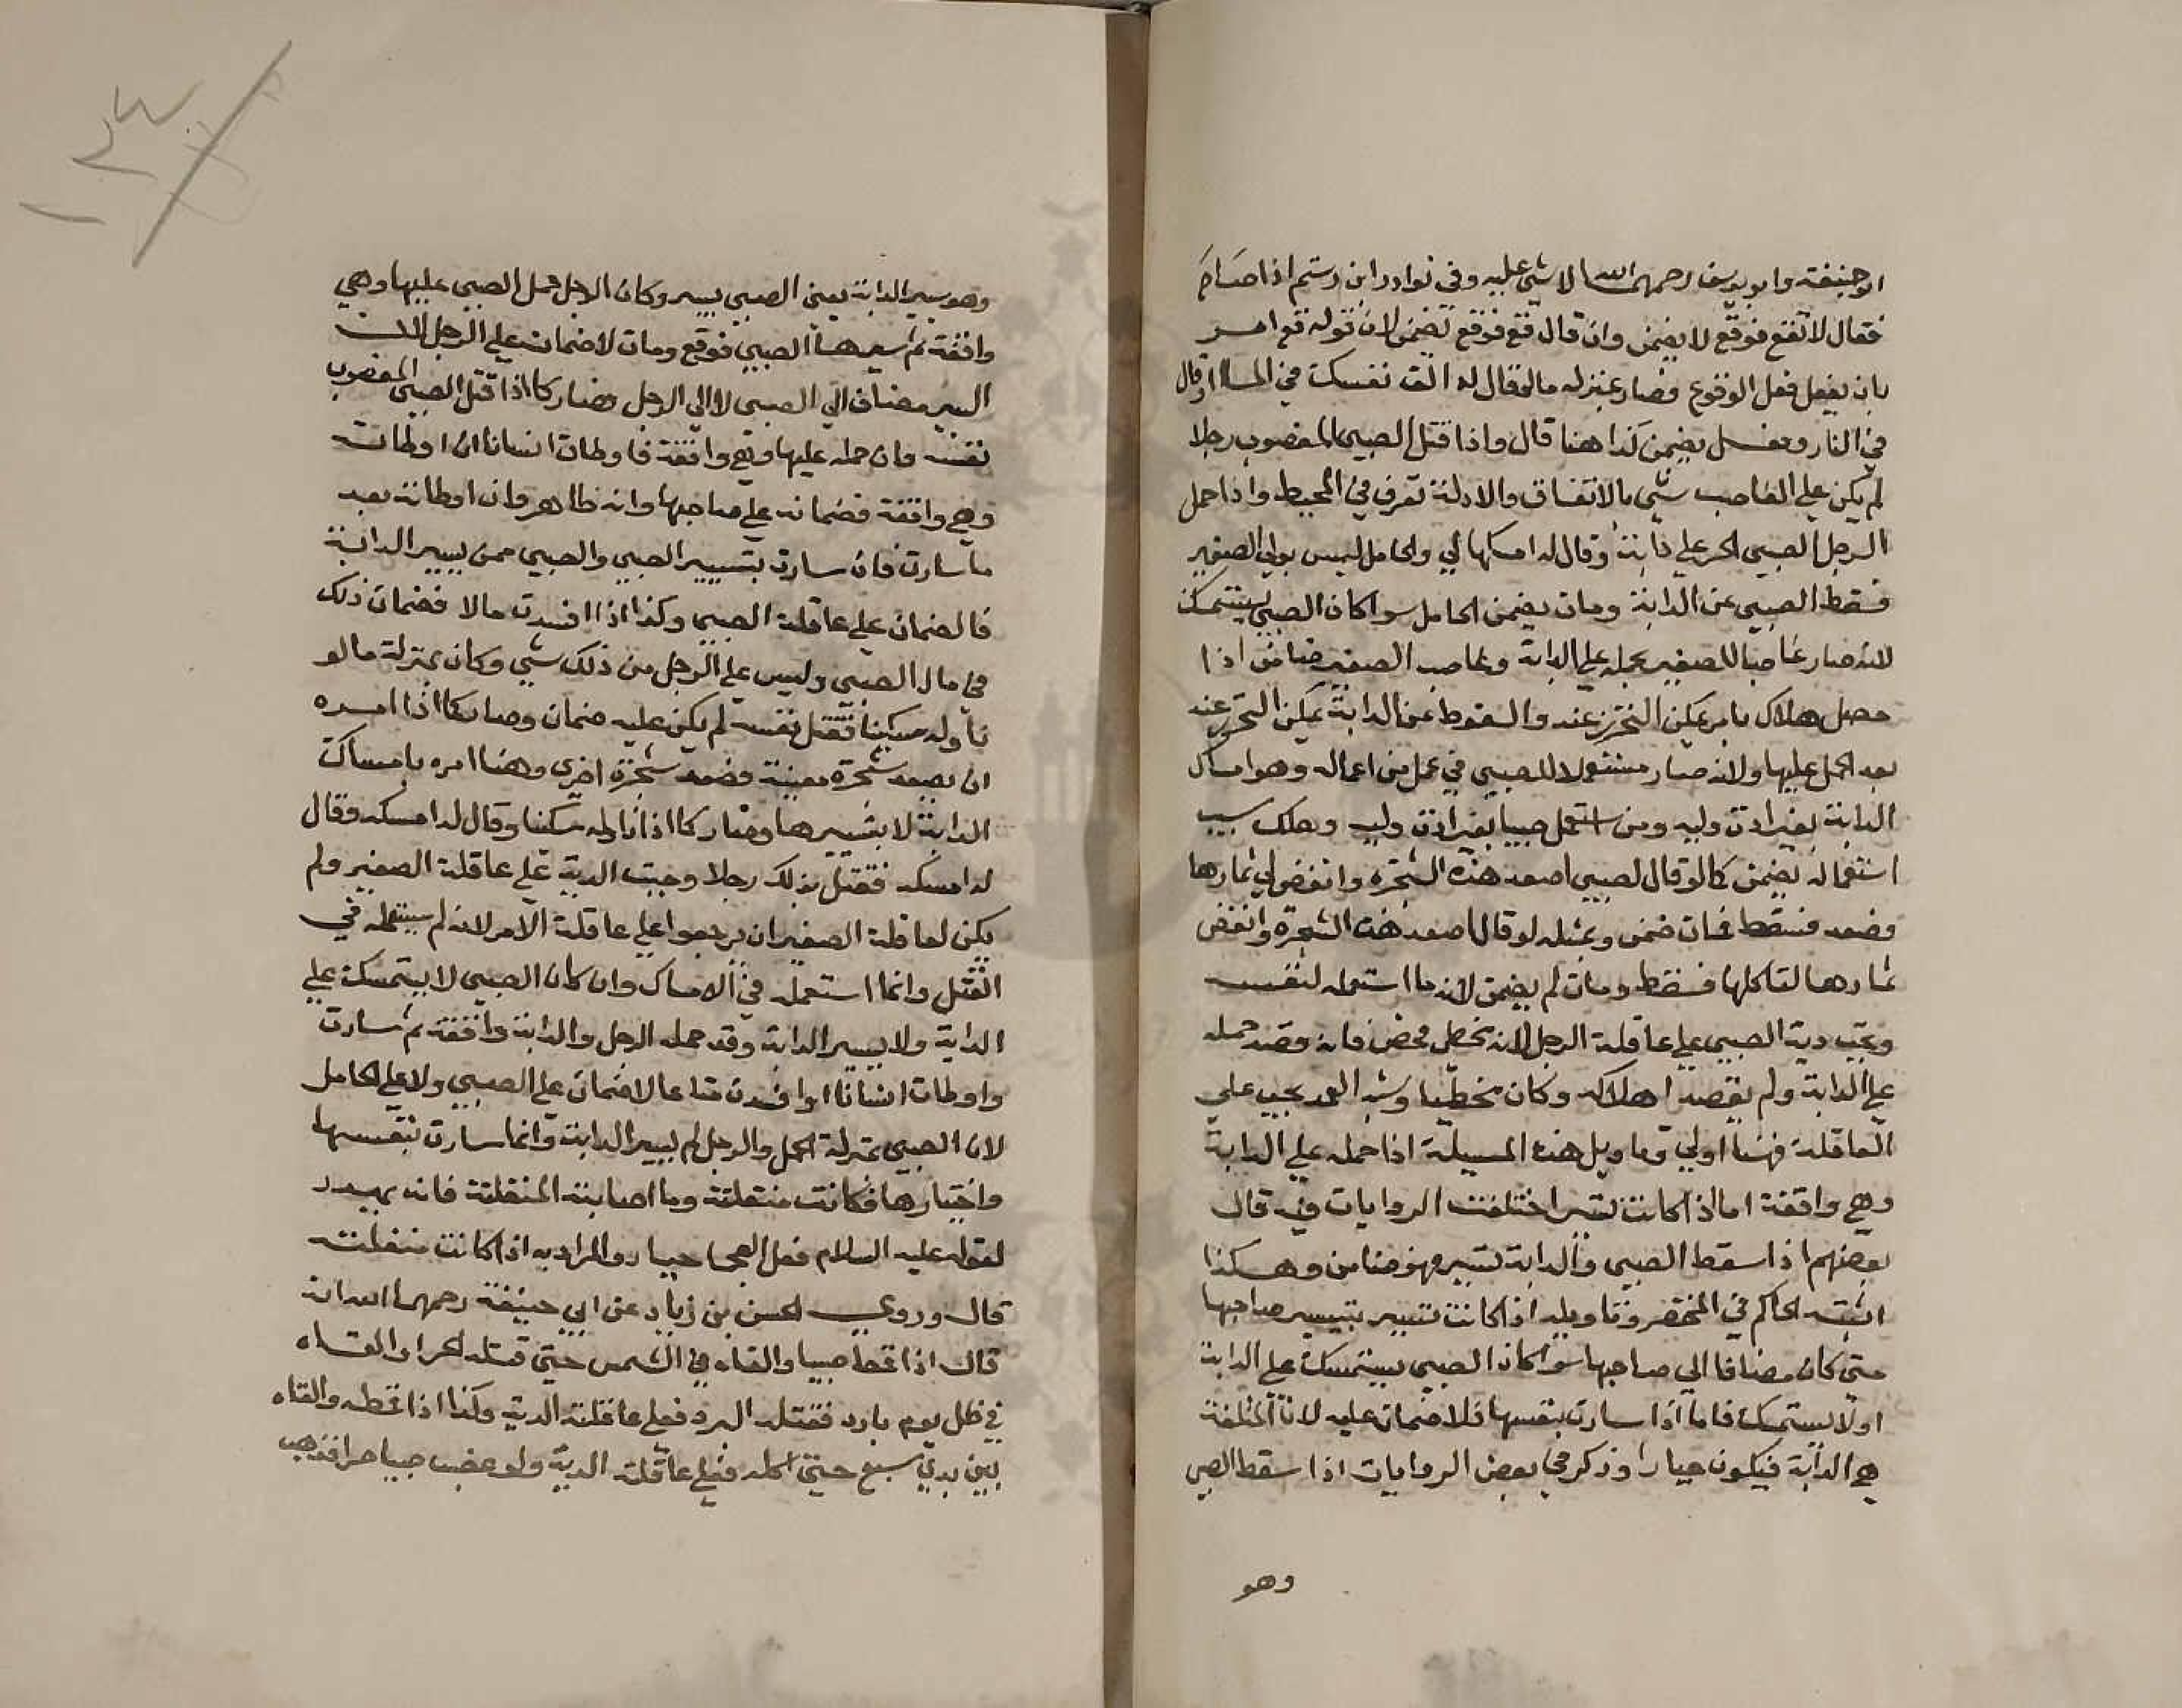 ابو حنيفة وابو يوسف رحمهما الله لا شي عليه وفي نوادر ابن رستم اذا صاح
فقال لا تقع فوقع لا يضمن وان قال قع فوقع يضمن لان قوله قع امر
بان يفعل فعل الوقوع فصار بمنزله ما لو قال له الق نفسك في الماء او قال
في النار وفعل يضمن كذا هنا قال واذا قتل الصبي المغصوب رجلا
لم يكن علي الغاصب شي بالاتفاق والادلة تعرف في المحيط واذا حمل
الرجل الصبي الحر علي دابته وقال له امسكها لي والحامل ليس بولي الصغير
فسقط الصبي عن الدابة ومات يضمن الحامل سوا كان الصبي يستمسك
لانه صار غاصبا للصغير بحمله علي الدابة وغاصب الصغير ضامن اذا
حصل هلاك بامر يمكن التحرز عنه والسقوط عن الدابة يمكن التحرز عنه
بعد الحمل عليها ولانه صار مستعملا للصبي في عمل من اعماله وهو امساك
الدابة بغير اذن وليه ومن استعمل صبيا بغير اذن وليه وهلك بسبب
استعماله يضمن كما لو قال لصبي اصعد هذه الشجرة وانفض لي ثمارها
فصعد فسقط فمات ضمن وبمثله لو قال اصعد هذه الشجرة وانفض
ثمارها لتاكلها فسقط ومات لم يضمن لانه ما استعمله لنفسه
وتجب دية الصبي علي عاقلة الرجل لانه مخطي محض فانه قصد حمله
علي الدابة ولم يقصد اهلاكه وكان مخطيا وشبه العمد يجب علي
العاقلة فهنا اولي وتاويل هذه المسيلة اذا حمله علي الدابة
وهي واقفة اما اذا كانت تسير اختلفت الروايات فيه قال
بعضهم اذا سقط الصبي والدابة تسير فهو ضامن وهكذا
اثبته الحاكم في المختصر وتاويله اذا كانت تسير بتسيير صاحبها
حتي كان مضافا الي صاحبها سوا كان الصبي يستمسك علي الدابة
او لا يستمسك فاما اذا سارت بنفسها فلا ضمان عليه لان المتلفة
هي الدابة فيكون جبارا وذكر في بعض الروايات اذا سقط الصبي
وهو
وهو يسير الدابة يعني الصبي يسير وكان الرجل حمل الصبي عليها وهي
واقفة ثم سيرها الصبي فوقع ومات لا ضمان علي الرجل لان
السير مضاف الي الصبي لا الي الرجل فصار كما اذا قتل الصبي المغصوب
نفسه فان حمله عليها وهي واقفة فاوطات انسانا ان اوطات
وهي واقفة فضمانه علي صاحبها وانه ظاهر وان اوطاته بعد
ما سارت فان سارت بتسيير الصبي والصبي ممن يسير الدابة
فالضمان علي عاقلة الصبي وكذا اذا افسدت مالا فضمان ذلك
في مال الصبي وليس علي الرجل من ذلك شي وكان بمنزلة ما لو
ناوله سكينا فقتل نفسه لم يكن عليه ضمان وصار كما اذا امره
ان يصعد شجرة معينة فصعد شجرة اخري وهنا امره بامساك
الدابة لا بتسييرها وصار كما اذا ناوله سكينا وقال له امسكه فقال
له امسكه فقتل بذلك رجلا وجبت الدية علي عاقلة الصغير ولم
يكن لعاقلة الصغير ان يرجعوا علي عاقلة الامر لانه لم يستعمله في
القتل وانما استعمله في الامساك وان كان الصبي لا يستمسك علي
الدابة ولا يسير الدابة وقد حمله الرجل والدابة واقفة ثم سارت
واوطات انسانا او افسدت متاعا لا ضمان علي الصبي ولا علي الحامل
لان الصبي بمنزلة الحمل والرجل لم يسير الدابة وانما سارت بنفسها
واختيارها فكانت منفلتة وما اصابته المنفلتة فانه يهدر
لقوله عليه السلام فعل العجما جبار والمراد به اذا كانت منفلتة
قال وروي الحسن بن زياد عن ابي حنيفة رحمهما الله انه
قال اذا قمط صبيا والقاه في الشمس حتي قتله الحر او القاه
في ظل يوم بارد فقتله البرد فعلي عاقلته الدية وكذا اذا قمطه والقاه
بين يدي سبع حتي اكله فعلي عاقلته الدية ولو غصب صبيا حرا فذهب